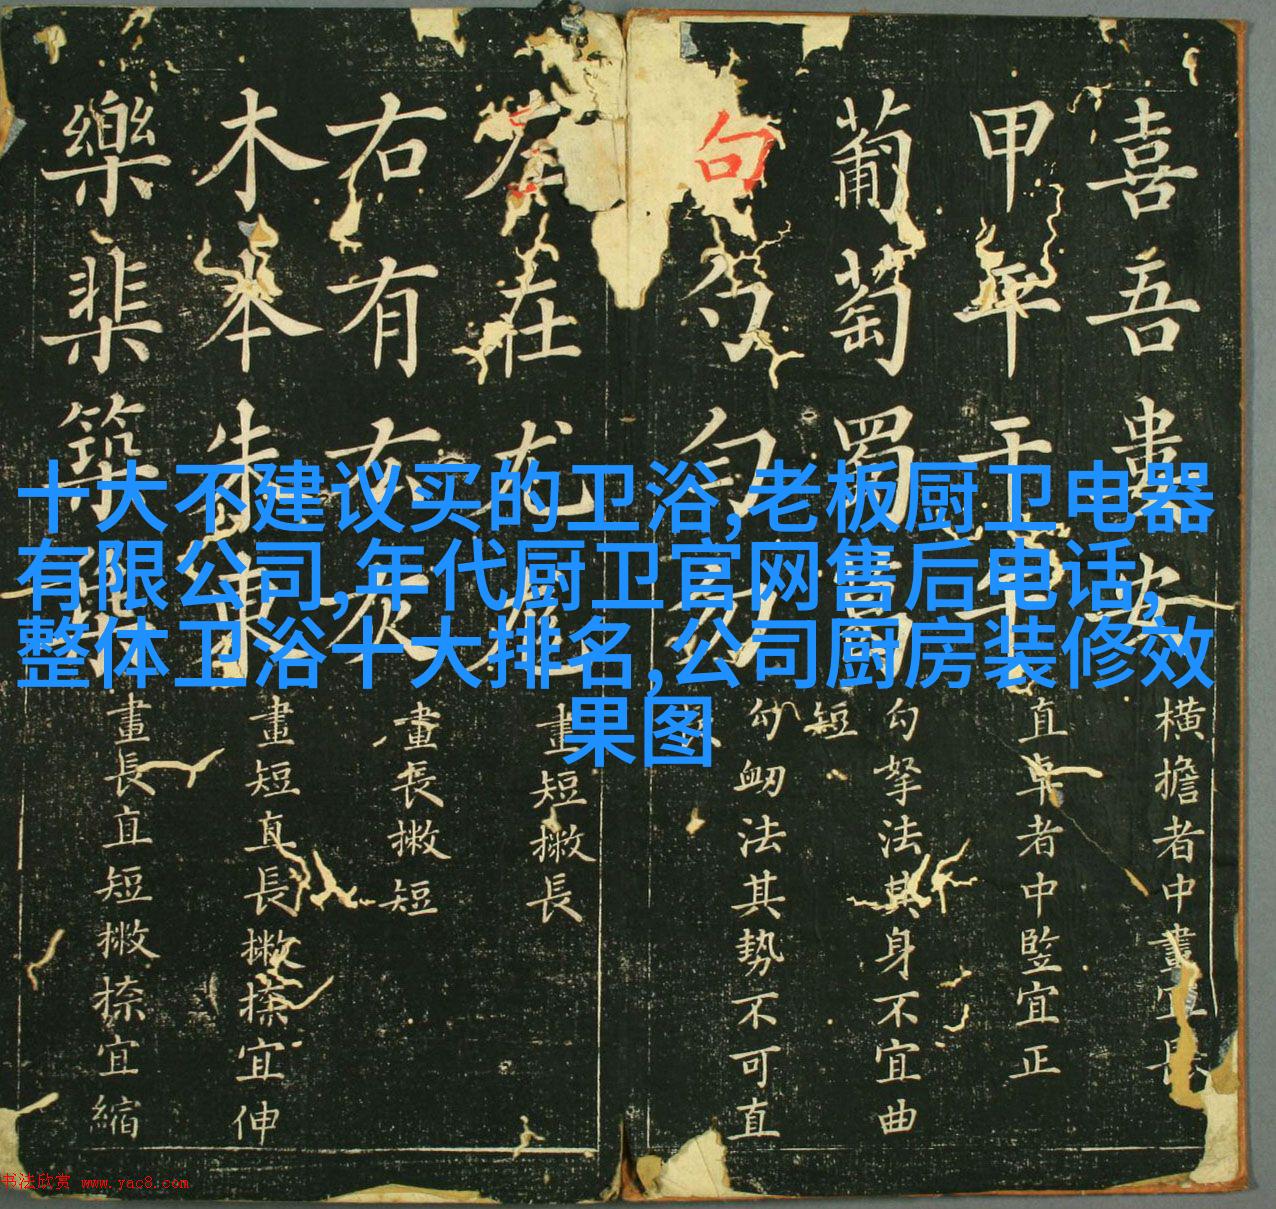 十大不建议买的卫浴,老板厨卫电器
有限公司,年代厨卫官网售后电话,
整体卫浴十大排名,公司厨房装修效
果图
喜吾安
橫擔者中畫宜長
甲平干午
直卓者中竪宜正
葡萄蜀
勾拏法其身不宜曲
短
句勺勻
勾衂法其勢不可直
左在尤
畫短撇長
右有灰
畫長撇短
木本朱
畫短直長撇捺宜伸
樂棐築
畫長直短撇捺宜縮
书法欣赏 www.yac8.com